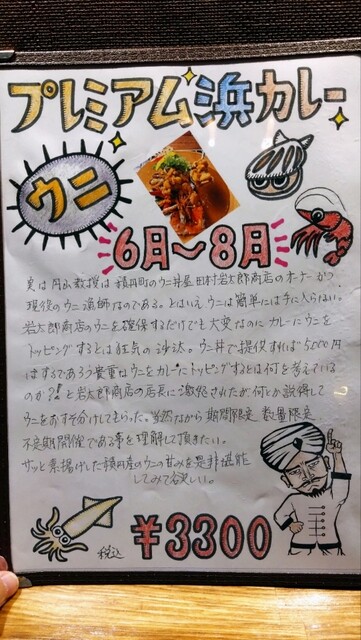 プレミアム浜カレー
ウニ
6月〜8月
実は円山教授は積丹町のウニ丼屋田村岩太郎商店のオーナーかつ
現役のウニ漁師なのである。とはいえウニは簡単には手に入らない。
岩太郎商店のウニを確保するだけでも大変なのにカレーにウニを
トッピングするとは狂気の沙汰。ウニ丼で提供すれば5,000円
はするであろう貴重なウニをカレーにトッピングするとは何を考えている
のか?!と岩太郎商店の店長に激怒されたが何とか説得して
ウニをおすそ分けしてもらった。当然ながら期間限定 数量限定
不定期開催である事を理解して頂きたい。
サッと素揚げした積丹産のウニの甘みを是非堪能
してみて欲しい。
税込 ¥3300